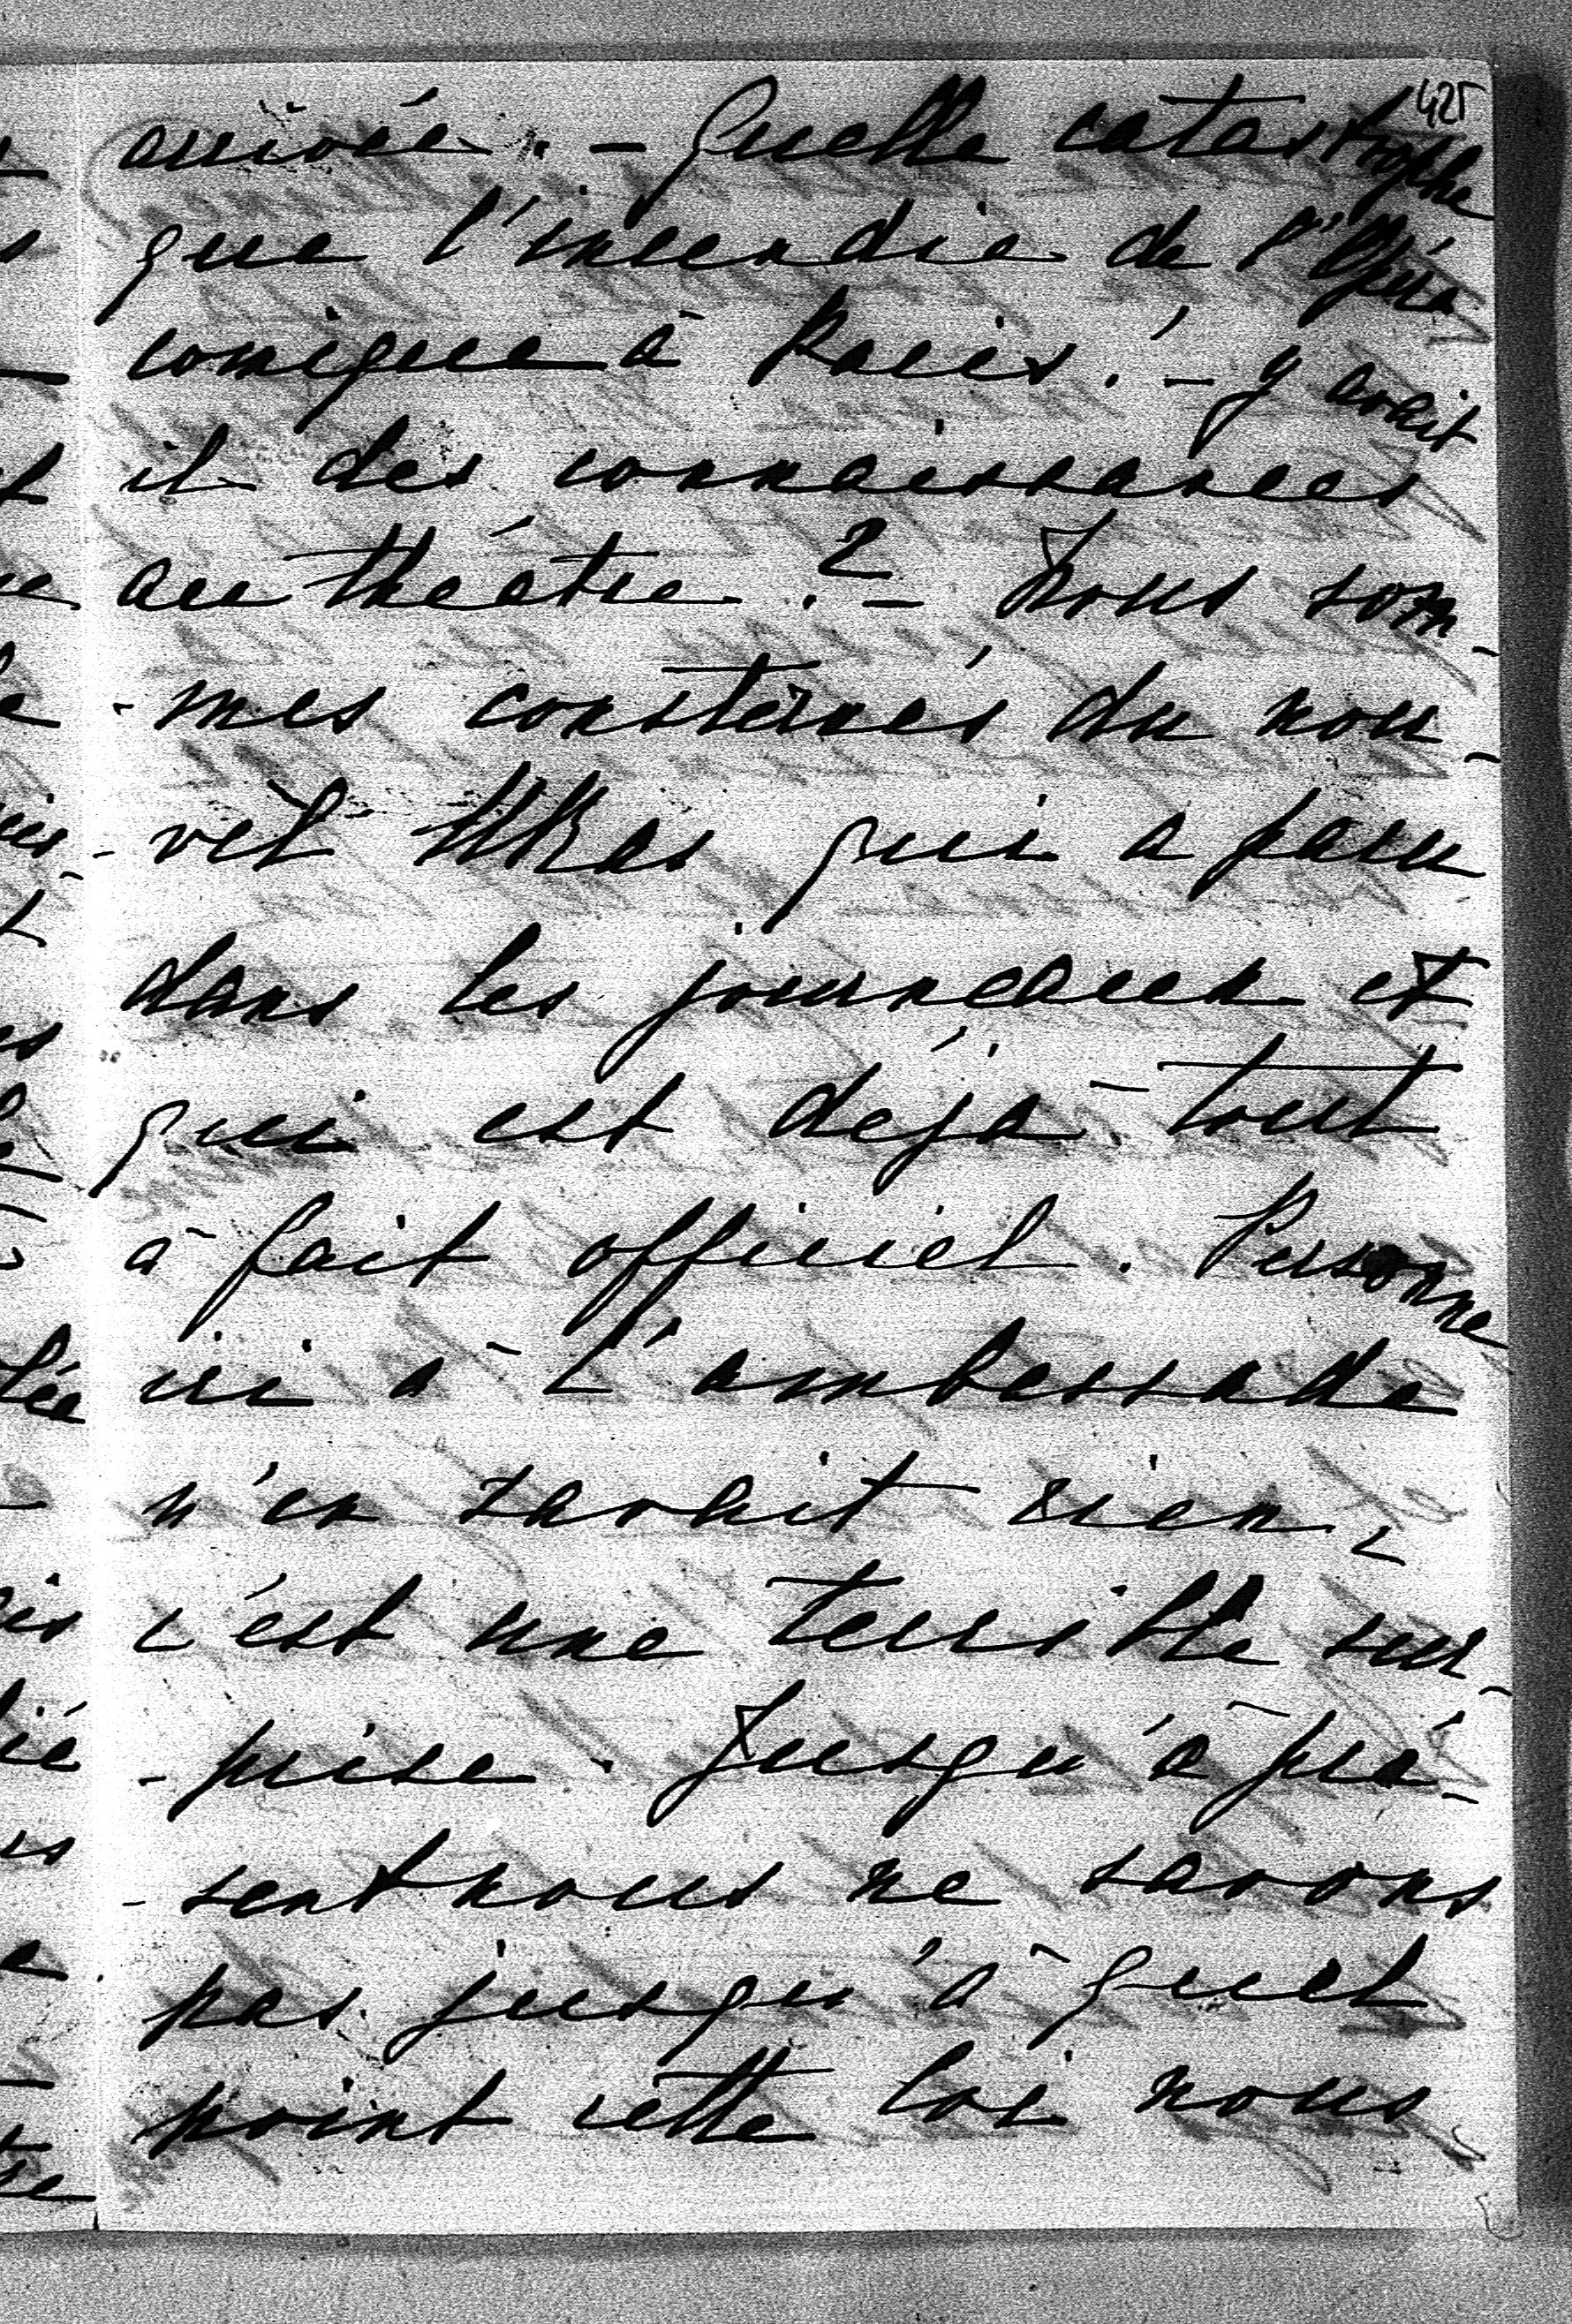 425
arrivée. – Quelle catastrophe
que l'incendie de l'Opéra
comique à Paris! – Y avait
il des connaissances
au théâtre? – Nous som-
-mes consternés du nou-
-vel Ukas qui a paru
dans les journeaux et
qui est déjà tout
à fait officiel. Personne
ici à L'ambassade
n'en savait rien,
c'est une terrible sur-
-prise. Jusqu'à pré-
-sent nous ne savons
pas jusqu'à quel
point cette loi nous